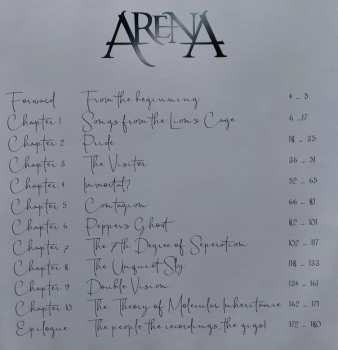 ARENA
Forward From the beginning 4 - 5
Chapter 1 Songs from the Lions Cage 6 - 17
Chapter 2 Pride 18 - 25
Chapter 3 The Visitor 26 - 51
Chapter 4 Immortal? 52 - 65
Chapter 5 Contagion 66 - 81
Chapter 6 Peppers Ghost 82 - 101
Chapter 7 The 7th Degree of Seperation 102 - 117
Chapter 8 The Unquiet Sky 118 - 133
Chapter 9 Double Vision 134 - 161
Chapter 10 The Theory of Molecular Inheritance 162 - 171
Epilogue The people, the recordings, the gigs! 172 - 180